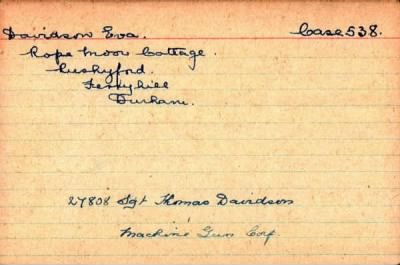 Davidson Eva. Case 538.
Rope Moor Cottage.
Rushyford.
Ferryhill
Durham.
27808 Sgt Thomas Davidson
Machine Gun Corp.